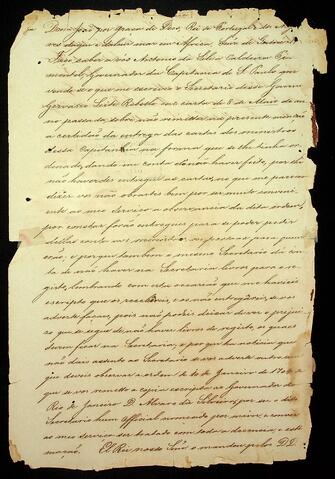 Dom João por graça de Deos, Rei de Portugal e dos Algarves
daquem e dalem mar em Africa, Snr. de Guiné &ª
Faço saber a vós Antonio da Silva Caldeira Pi-
mentel, Governador da Capitania de S. Paulo que
vendo o que me escreveo o Secretario desse Governo
Gervazio Leite Rebello em carta de 8 de Maio do an-
no passado, sobre não remeter ao presente
a certidão da entrega das cartas dos ministros
dessa Capitania na forma que se lhe tinha or-
denado, dando em conta do não haver feito, por lhe
não haverdes entregue as cartas, no que me pareceo
dizer-vos não obrastes bem por ser muito conveni-
ente ao meu Serviço a observancia da dita ordem,
por constar forão entregues para se poder pedir
dellas conta aos ministros
e porque tambem o mesmo Secretario dá con-
ta de não haver na Secretaria livros para o re-
gisto, lembrando com esta occasião que me havieis
escripto que os, e os não entregáveis, se vos
adverte facaes, pois não podeis deixar de ver o prejui-
zo que se segue de não haver livros de registo, os quaes
devem ficar na Secretaria; e porque tu noticias que
não dais assento ao Secretario se vos adverte outro sim
que deveis observar a ordem de 20 de Janeiro de
que se vos remette a copia escripta ao Governador do
Rio de Janeiro D. Alvaro da Silveira, por ser o dito
Secretario hum official nomeado por mim, e convir
ao meu serviço ser tratado com toda a decencia, e esti-
mação. El Rei nosso Snr. o mandou pelo DD.